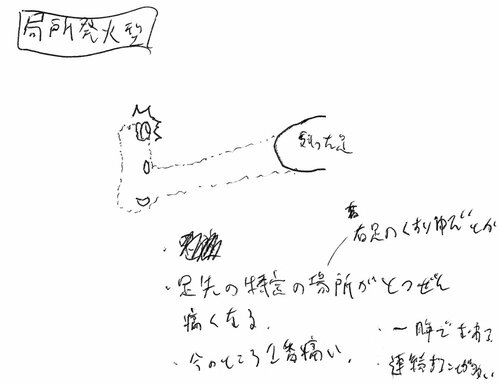 局所発火型
残った足
右足のくすりゆびとか
・足先の特定の場所がとつぜん
痛くなる.
・今のところ1番痛い.
・一瞬で
連続